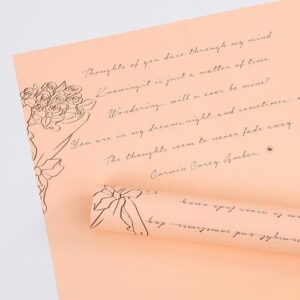 Thoughts of you dace through my mind.
Knowing it is just a matter of time.
Wondering will u ever be mine?
You are in my dreams night and sometimes
The thoughts seem to never fade away.
Corwin Corey Amber
night and sometimes day
to never fade away